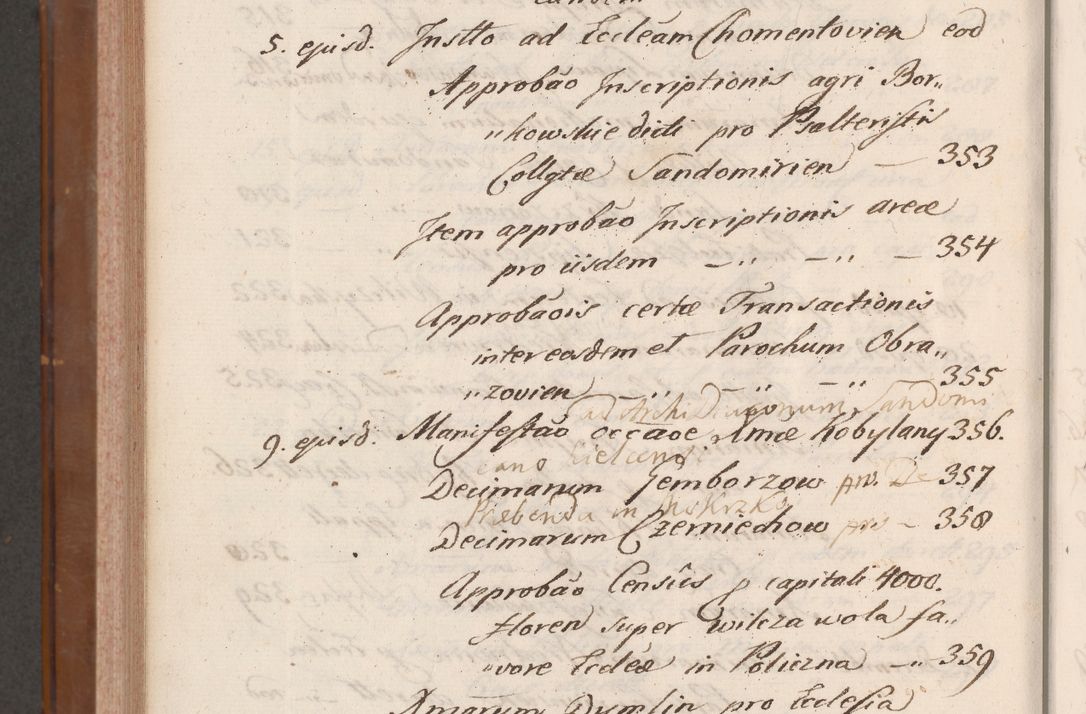 5. ejusd. Instto ad Eccleam Chomentovien eod
Approbão Inscriptionis agri Bor„
„kowskie dicti pro Psalteristis
Collgtæ Sandomirien — 353
Item approbão Inscriptionis areæ
pro iisdem — „ — „ — 354
Approbãois certæ Transactionis
inter eosdem et Parochum Obra„
„zovien — „ — „ — „ 355
ad Archi Diaconum Sandomi
9. ejusd. Manifestão occãoe Xmæ Kobylany 356.
cano Kielcensi
Decimarum Gemborzow pro. De 357
Præbenda in
Decimarum Czerniechow pro – 358
Approbão Censûs p capitali 4000.
floren super wilcza wola fa„
„vore Eccleæ in Policzna —„ 359
Xmarum Dymlin pro Ecclesia